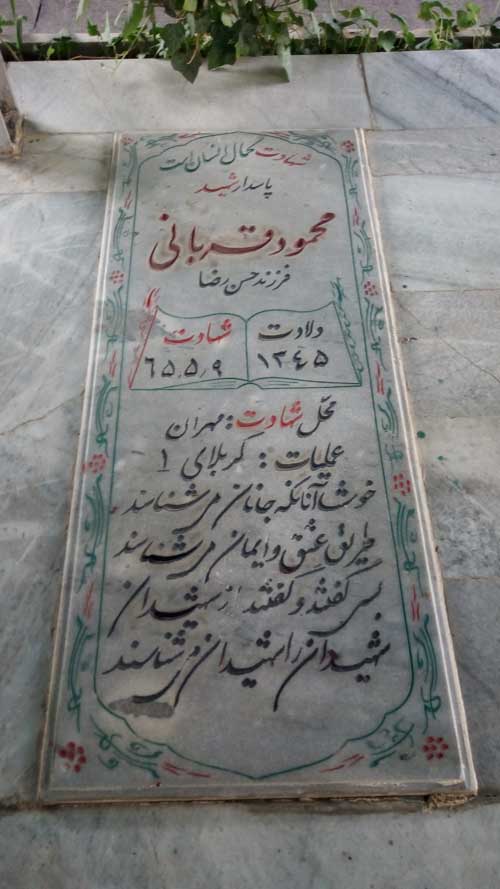 شهادت کمال انسان است
پاسدار شهید
محمود قربانی
فرزند حسن رضا
ولادت شهادت
۱۳۴۵ ۶۵٫۵٫۹
محل شهادت: مهران
عملیات: کربلای ۱
خوشا آنانکه جانان می شناسند
طریق عشق و ایمان می شناسند
بسی گفتند و گفتند از شهیدان
شهیدان را شهیدان می شناسند